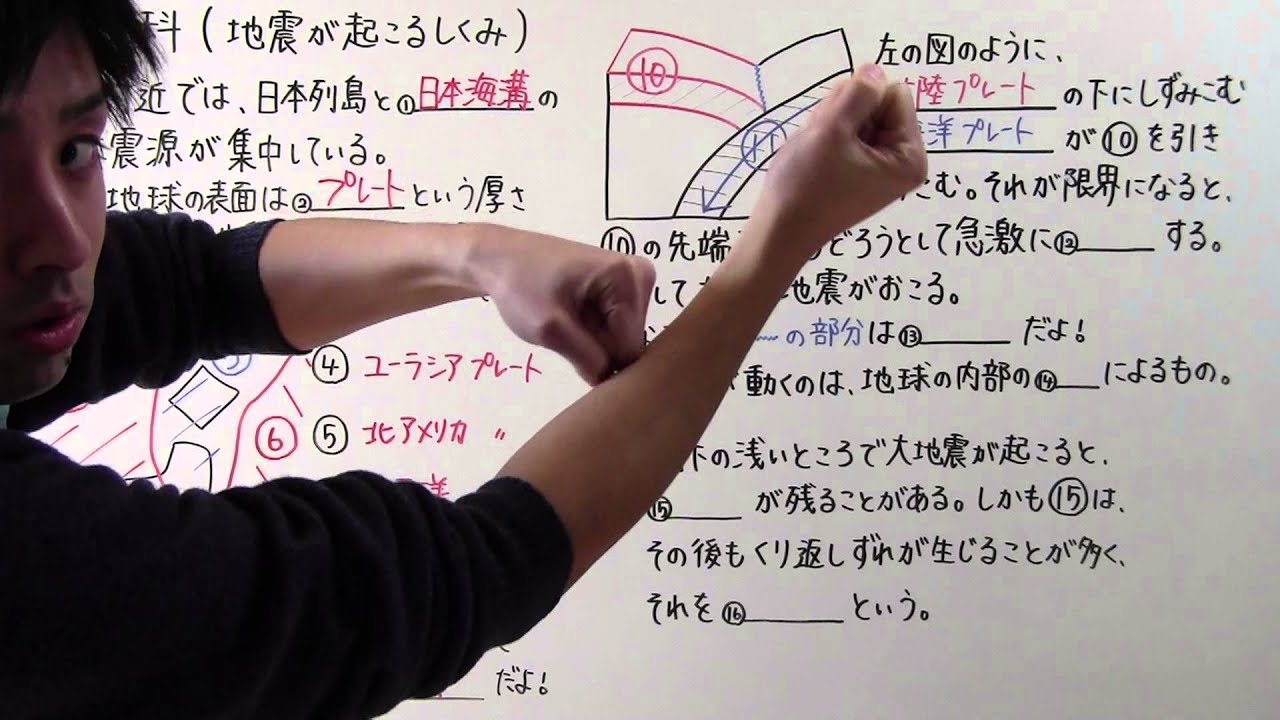 科(地震が起こるしくみ)
近では、日本列島と①日本海溝の
震源が集中している。
地球の表面は②プレートという厚さ
④ユーラシアプレート
⑤北アメリカ 〃
⑥
洋
だよ!
⑩
⑪
左の図のように、
陸プレートの下にしずみこむ
洋プレートが⑩を引き
こむ。それが限界になると、
⑩の先端 どろうとして急激に⑫する。
して 地震がおこる。
の部分は⑬だよ!
が動くのは、地球の内部の⑭によるもの。
下の浅いところで大地震が起こると、
⑮が残ることがある。しかも⑮は、
その後もくり返しずれが生じることが多く、
それを⑯という。